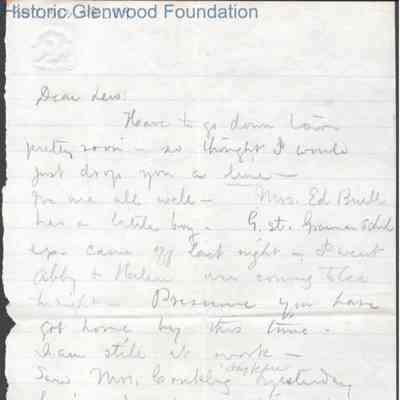 Historic Glenwood Foundation
Dear Lew:
Have to go down town
pretty soon - so thought I would
just drop you a line -
you are all well - Mrs. Ed Bull
has a little boy. G. St. Grammar School
came off last night - I went
Abby & Helen are coming to tea
to night - Presume you have
got home by this time -
I am still at work -
Saw Mrs. Conkling yesterday